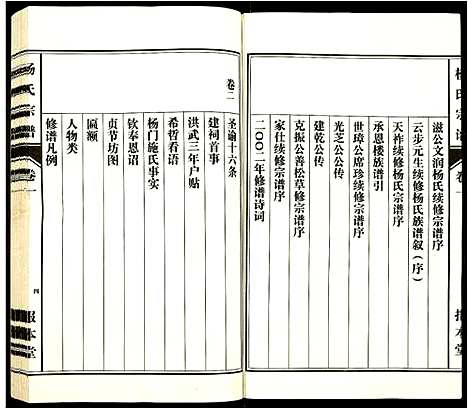 杨氏宗谱
卷一
报本堂
滋公文润杨氏续修宗谱序
云步元生续修杨氏族谱叙（序）
天祚续修杨氏宗谱序
承恩楼族谱引
世璋公席珍续修宗谱序
光芝公公传
建乾公传
克振公善松草修宗谱序
家仕续修宗谱序
二〇〇二年修谱诗词
卷二
圣谕十六条
建祠首事
洪武三年户贴
希哲看语
杨门施氏事实
钦奉恩诏
贞节坊图
匾额
人物类
修谱凡例
杨氏宗谱
卷一
四
报本堂